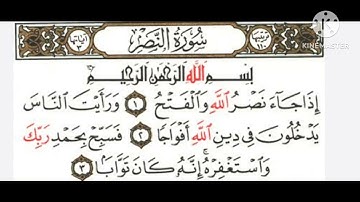 سُورَةُ النَّصْرِ
بِسْمِ اللَّهِ الرَّحْمَٰنِ الرَّحِيمِ
إِذَا جَآءَ نَصْرُ اللَّهِ وَالْفَتْحُ ١ وَرَأَيْتَ النَّاسَ
يَدْخُلُونَ فِي دِينِ اللَّهِ أَفْوَاجًا ٢ فَسَبِّحْ بِحَمْدِ رَبِّكَ
وَاسْتَغْفِرْهُ ۚ إِنَّهُ كَانَ تَوَّابًا ٣
KINEMASTER